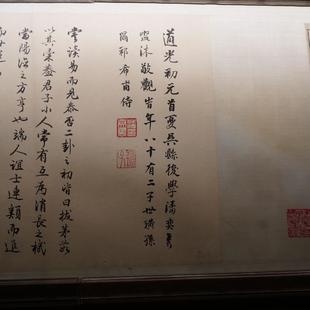 道光初元首夏吳縣後學潘奕雋
盥沐敬觀旹年八十有二子世璜孫
遵祁希甫侍
嘗讀易而見泰否二卦之初皆曰拔茅茹
以其彙蓋君子小人常有互為消長之機
當陽治之方亨也端人誼士連類而進